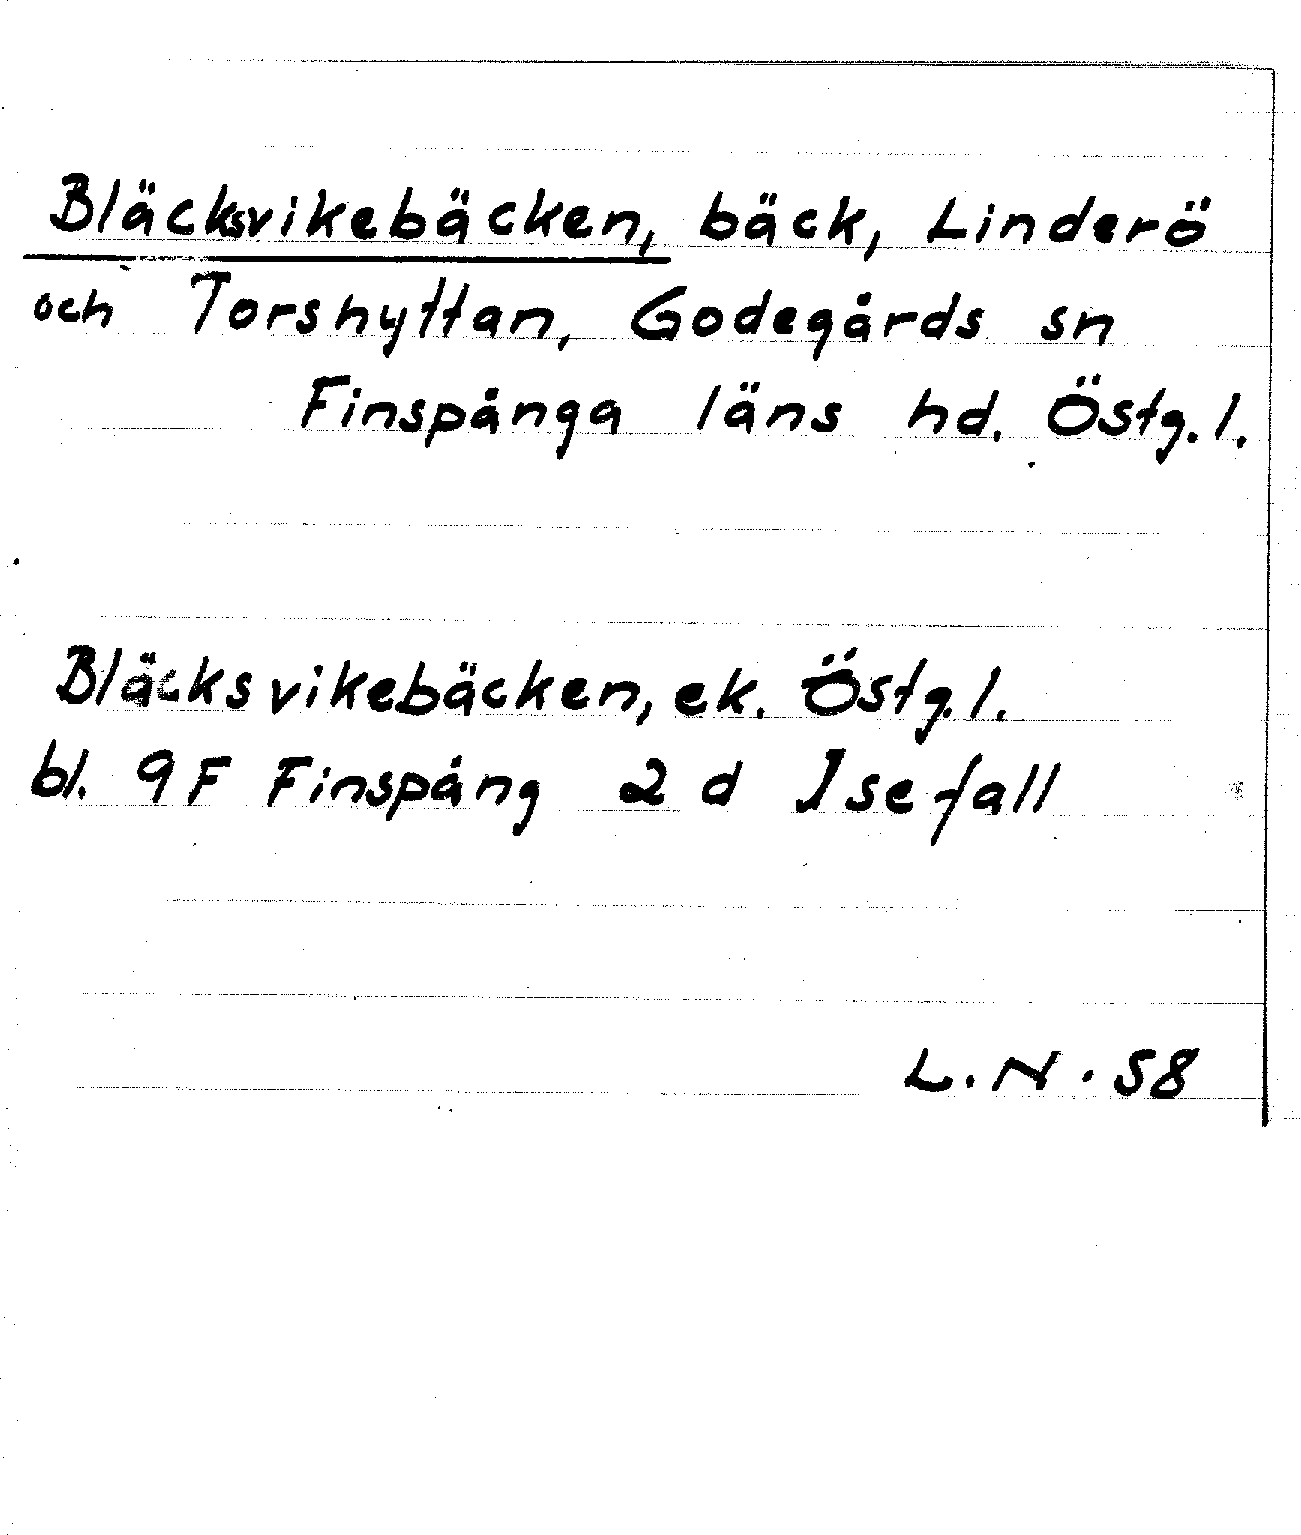 Bläcksvikebäcken, bäck, Linderö
och Torshyttan, Godegårds sn
Finspånga läns hd. Östg.l.
Bläcksvikebäcken, ek. Östg.l.
bl. 9F Finspång 2 d Isefall
L.N.58